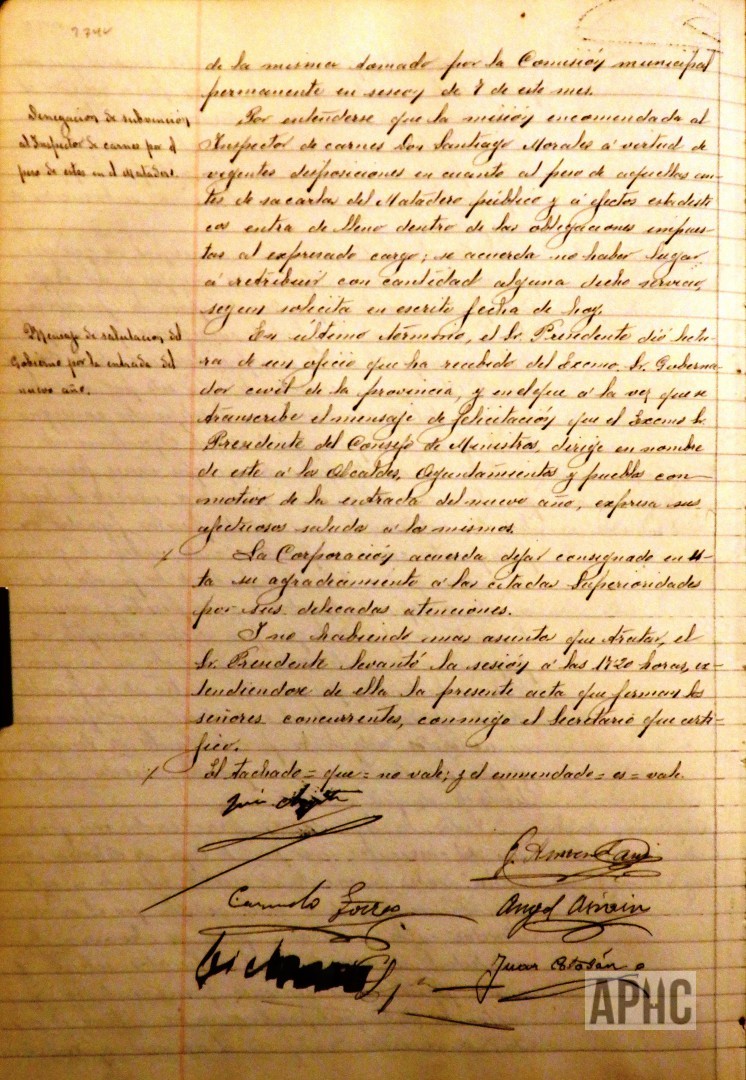 de la misma tomado por la Comisión municipal
permanente en sesión de 7 de este mes.
Denegación de subvención
al Inspector de carnes por el
peso de estas en el Matadero.
Por entenderse que la misión encomendada al
Inspector de carnes Don Santiago Morales a virtud de
vigentes disposiciones en cuanto al peso de aquellas an-
tes de sacarlas del Matadero público y a efectos estadísti
cos entra de lleno dentro de las obligaciones impues-
tas al expresado cargo; se acuerda no haber lugar
a retribuir con cantidad alguna dicho servicio,
segun solicita en escrito fecha de hoy.
Mensaje de salutacion del
Gobierno por la entrada del
nuevo año.
En último término, el Sr. Presidente dió lectu-
ra de un oficio que ha recibido del Excmo. Sr. Goberna-
dor civil de la provincia, y en el que a la vez que se
transcribe el mensaje de felicitación que el Excmo Sr.
Presidente del Consejo de Ministros, dirige en nombre
de este a los Alcaldes, Ayuntamientos y pueblos con
motivo de la entrada del nuevo año, expresa sus
afectuosos saludos a los mismos.
La Corporación acuerda dejar consignado en
ta su agradecimiento a las citadas Superioridades
por sus delicadas atenciones.
Y no habiendo mas asuntos que tratar, el
Sr. Presidente levantó la sesión a las 17'20 horas, ex-
tendiendose de ella la presente acta que firman los
señores concurrentes, conmigo el Secretario que certi-
fico.
El tachado = que = no vale; y el enmendado = es = vale.
Carmelo Torres
Angel Asirain
Juan
APHC